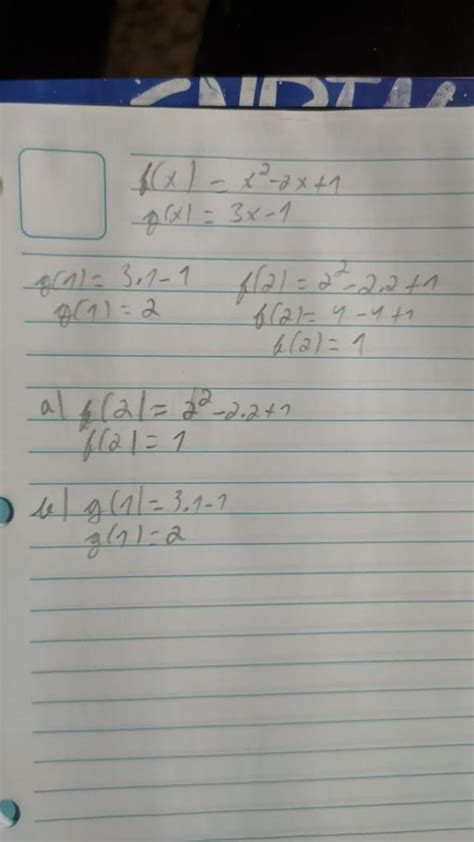 f(x) = x²-2x+1
g(x) = 3x-1
g(1) = 3.1-1
g(1) = 2
f(2) = 2²-2.2+1
f(2) = 4-4+1
f(2) = 1
a) f(2) = 2²-2.2+1
f(2) = 1
b) g(1) = 3.1-1
g(1) = 2